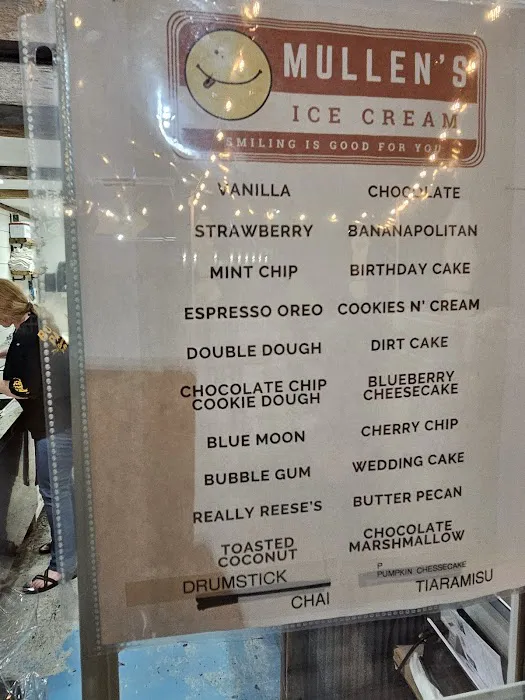 MULLEN'S
ICE CREAM
SMILING IS GOOD FOR YOU
VANILLA
CHOCOLATE
STRAWBERRY
BANANAPOLITAN
MINT CHIP
BIRTHDAY CAKE
ESPRESSO OREO
COOKIES N' CREAM
DOUBLE DOUGH
DIRT CAKE
CHOCOLATE CHIP
COOKIE DOUGH
BLUEBERRY
CHEESECAKE
BLUE MOON
CHERRY CHIP
BUBBLE GUM
WEDDING CAKE
REALLY REESE'S
BUTTER PECAN
TOASTED
COCONUT
CHOCOLATE
MARSHMALLOW
P
PUMPKIN CHESSECAKE
DRUMSTICK
TIARAMISU
CHAI